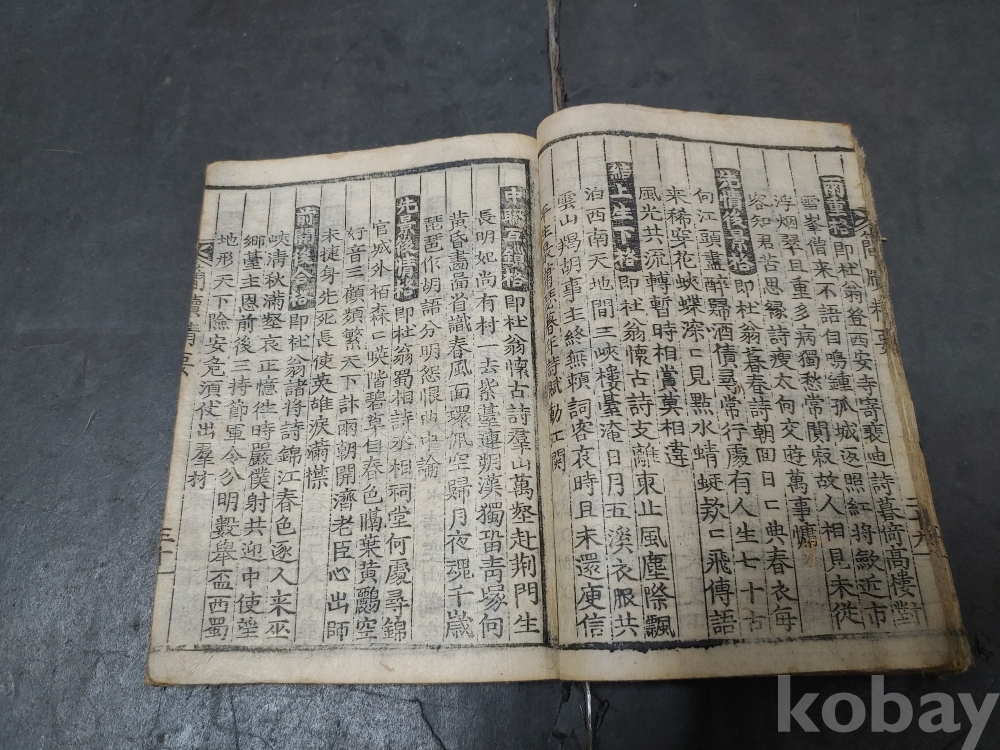 兩重格 即杜翁登西安寺寄裴迪詩暮倚高樓對
雪峯僧來不語自鳴鍾孤城返照紅將歛近市
浮烟翠且重多病獨愁常閴寂故人相見未從
容知君苦思緣詩瘦太向交遊萬事慵
先情後景格 即杜翁暮春詩朝回日〻典春衣每
向江頭盡醉歸酒債尋常行處有人生七十古
來稀穿花蛺蝶深〻見點水蜻蜓欵〻飛傳語
風光共流轉暫時相賞莫相違
結上生下格 即杜翁懷古詩支離東北風塵際飄
泊西南天地間三峽樓臺淹日月五溪衣服共
雲山羯胡事主終無賴詞客哀時且未還庾信
平生最蕭瑟暮年詩賦動江關
中聯互鎖格 即杜翁懷古詩羣山萬壑赴荆門生
長明妃尚有村一去紫臺連朔漠獨留靑塚向
黃昏畵啚省識春風面環佩空歸月夜魂千歲
琵琶作胡語分明怨恨曲中論
先景後情格 即杜翁蜀相詩丞相祠堂何處尋錦
官城外栢森〻暎階碧草自春色隔葉黃鸝空
好音三顧頻繁天下計兩朝開濟老臣心出師
未捷身先死長使英雄淚滿襟
即杜翁諸將詩錦江春色逐人來巫
峽淸秋滿壑哀正憶徃時嚴僕射共迎中使望
鄉臺主恩前後三持節軍令分明數擧盃西蜀
地形天下險安危須仗出羣材